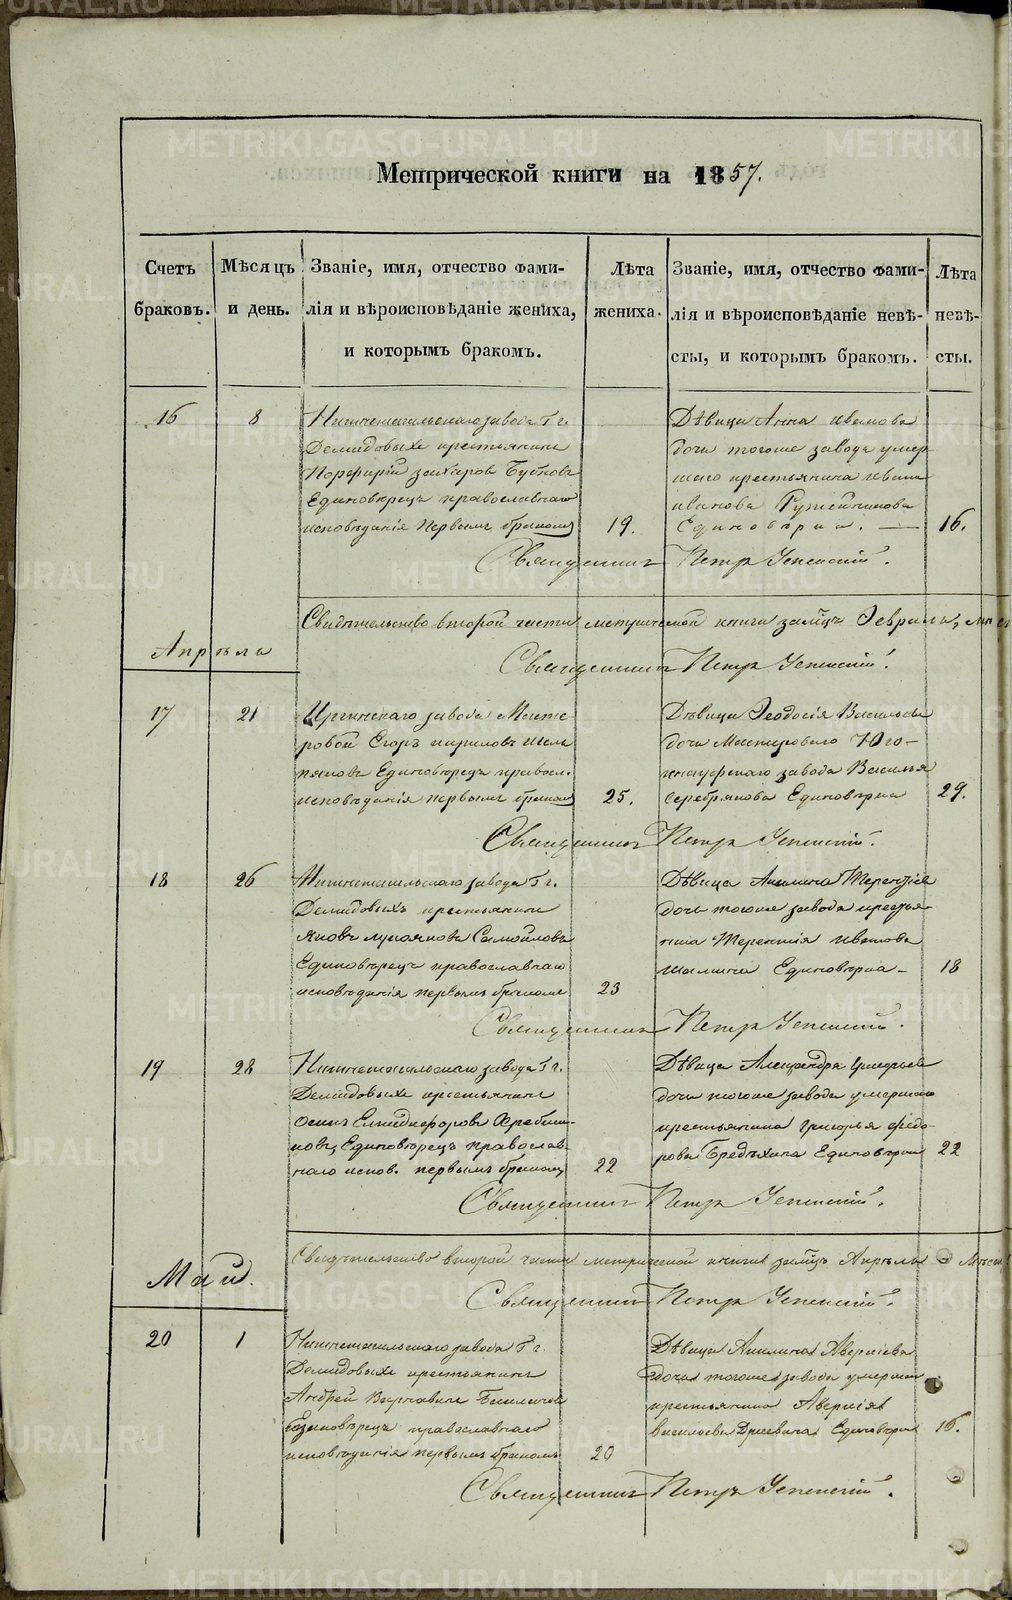 Метрической книги на 1857.
Счетъ браковъ.
Мѣсяцъ и день.
Званіе, имя, отчество фами-
лія и вѣроисповѣданіе жениха,
и которымъ бракомъ.
Лѣта жениха.
Званіе, имя, отчество фами-
лія и вѣроисповѣданіе невѣ-
сты, и которымъ бракомъ.
Лѣта невѣ-
сты.
16
8
Нижнетагильскаго завода Гг.
Демидовыхъ крестьянинъ
Порфирій Захаровъ
Единовѣрецъ православнаго
исповѣданія первымъ бракомъ
19.
Дѣвица Анна Иванова
дочь тогоже завода умер
шаго крестьянина Ивана
Иванова
Единовѣрка.
16.
Священникъ Петръ Успенскій.
Свидѣтельство второй части метрической книги за мѣцъ Февраль,
Священникъ Петръ Успенскій.
Апрѣль
17
21
Иргинскаго завода Масте
ровой Егоръ Кириловъ
Единовѣрецъ правосл.
исповѣданія первымъ бракомъ
25.
Дѣвица Феодосія Васильева
дочь Мастероваго Юго-
кнауфскаго завода Василья
Серебрякова Единовѣрка
29.
Священникъ Петръ Успенскій.
18
26
Нижнетагильскаго завода Гг.
Демидовыхъ крестьянинъ
Яковъ Лукояновъ Самойловъ
Единовѣрецъ православнаго
исповѣданія первымъ бракомъ
23
Дѣвица Акилина Терентіева
дочь тогоже завода крестья-
нина Терентія Иванова
Единовѣрка-
18
Священникъ Петръ Успенскій.
19
28
Нижнетагильскаго завода Гг.
Демидовыхъ крестьянинъ
Осипъ Елпидифоровъ
Единовѣрецъ православ-
наго испов. первымъ бракомъ
22
Дѣвица Александра Григорьева
дочь тогоже завода умершаго
крестьянина Григорья Федо-
рова Бредихина Единовѣрка
22
Священникъ Петръ Успенскій.
Свидѣтельство второй части метрической книги за мѣцъ Апрѣль
Священникъ Петръ Успенскій.
Май.
20
1
Нижнетагильскаго завода Гг.
Демидовыхъ крестьянинъ
Андрей
Единовѣрецъ православнаго
исповѣданія первымъ бракомъ
20
Дѣвица Акилина Аверкіева
дочь тогоже завода умершаго
крестьянина Аверкія
Васильева Единовѣрка
16.
Священникъ Петръ Успенскій.
METRIKI.GASO-URAL.RU